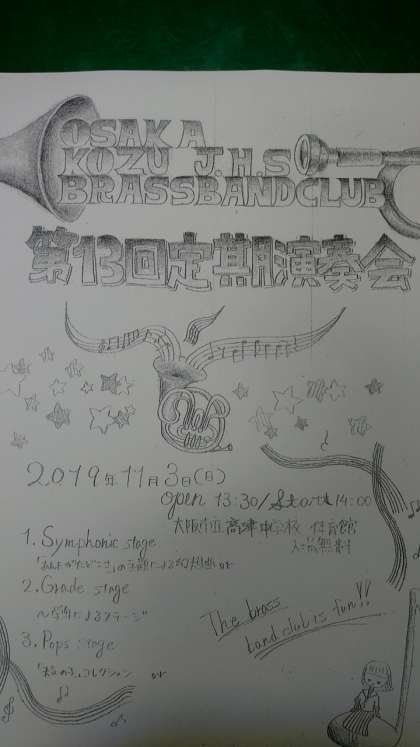 OSAKA
KOZU J.H.S
BRASSBANDCLUB
第13回定期演奏会
2019年11月3日(日)
open 13:30/Start 14:00
大阪市立高津中学校 体育館
入場無料
1. Symphonic stage
「あんたがたどこさ」の主題による幻想曲 or
2. Grade stage
〜学年によるステージ〜
3. Pops stage
コレクション or
The brass
band club is fun!!